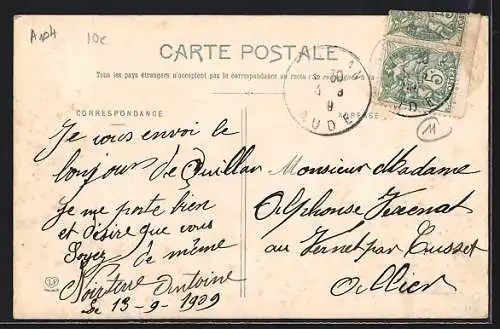 10c
CARTE POSTALE
Tous les pays étrangers n'acceptent pas la correspondance au recto
CORRESPONDANCE
ADRESSE
AUDE
5
11
Je vous envoi le
bonjour de Quillan
Je me porte bien
et désire que vous
Soyez de même
Antoine
Le 13-9-1909
Monsieur Madame
Alphonse
au Vernet par Cusset
Allier